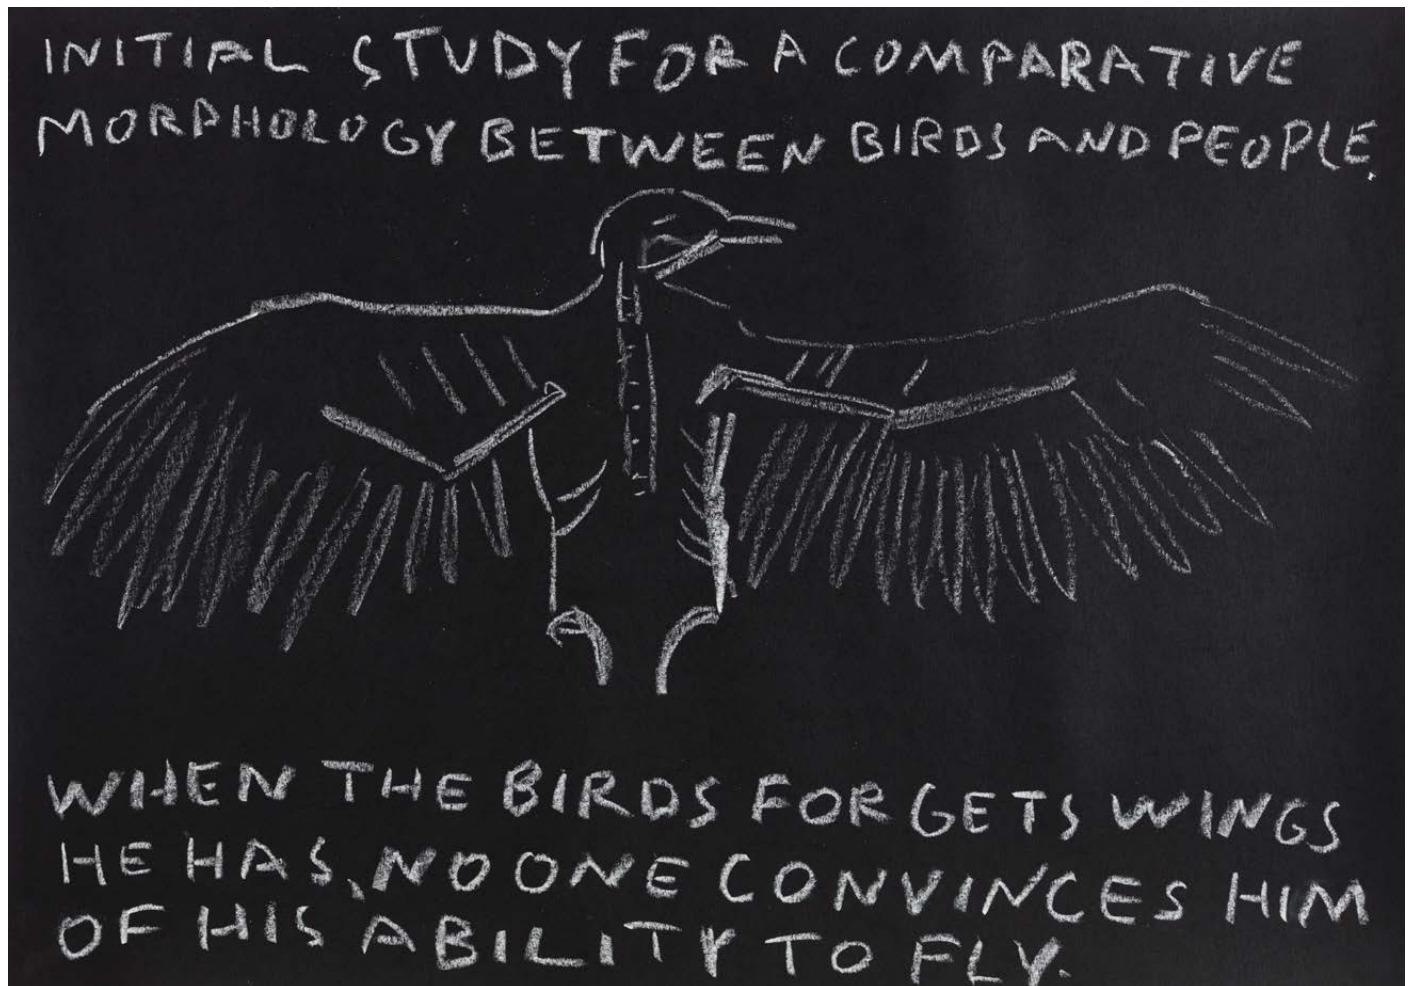 INITIAL STUDY FOR A COMPARATIVE
MORPHOLOGY BETWEEN BIRDS AND PEOPLE.
WHEN THE BIRDS FORGETS WINGS
HE HAS, NO ONE CONVINCES HIM
OF HIS ABILITY TO FLY.